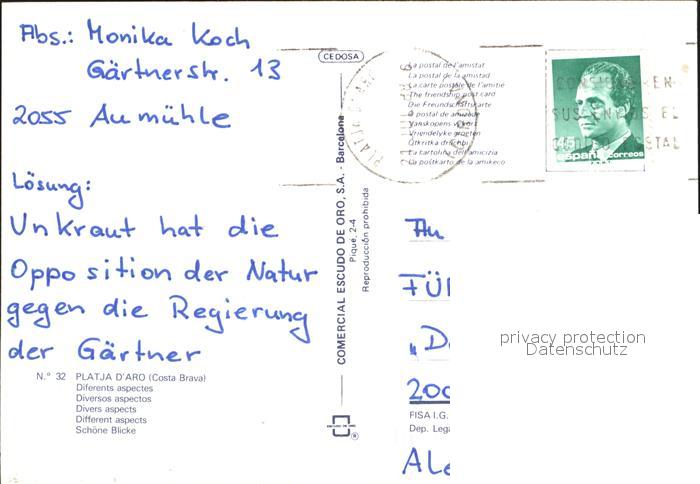 Abs.: Monika Koch
Gärtnerstr. 13
2055 Aumühle
Lösung:
Unkraut hat die
Opposition der Natur
gegen die Regierung
der Gärtner
N.° 32 PLATJA D'ARO (Costa Brava)
Diferents aspectes
Diversos aspectos
Divers aspects
Different aspects
Schöne Blicke
CEDOSA
COMERCIAL ESCUDO DE ORO, S.A. - Barcelona
Piqué, 2-4
Reproducción prohibida
La postal de l'amistat
La postal de la amistad
La carte postale de l'amitié
The friendship post card
Die Freundschaftskarte
La cartolina dell'amicizia
La poŝtkarto de la amikeco
PLATJA
45
españa correos
CONSIGNE EN
SUS ENVIOS EL
POSTAL
An
FÜ
"D
200
FISA I.G.
Dep. Leg
Ale
privacy protection
Datenschutz